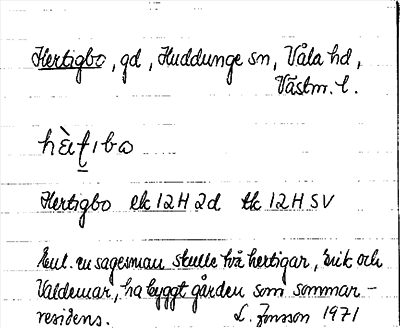 Hertigbo, gd, Huddunge sn, Våla hd,
Västm. l.
hèrtɪbo
Hertigbo ek 12H 2d tk 12H SV
Enl. en sagesman skulle två hertigar, Erik och
Valdemar, ha byggt gården som sommar-
residens. L. Jonsson 1971